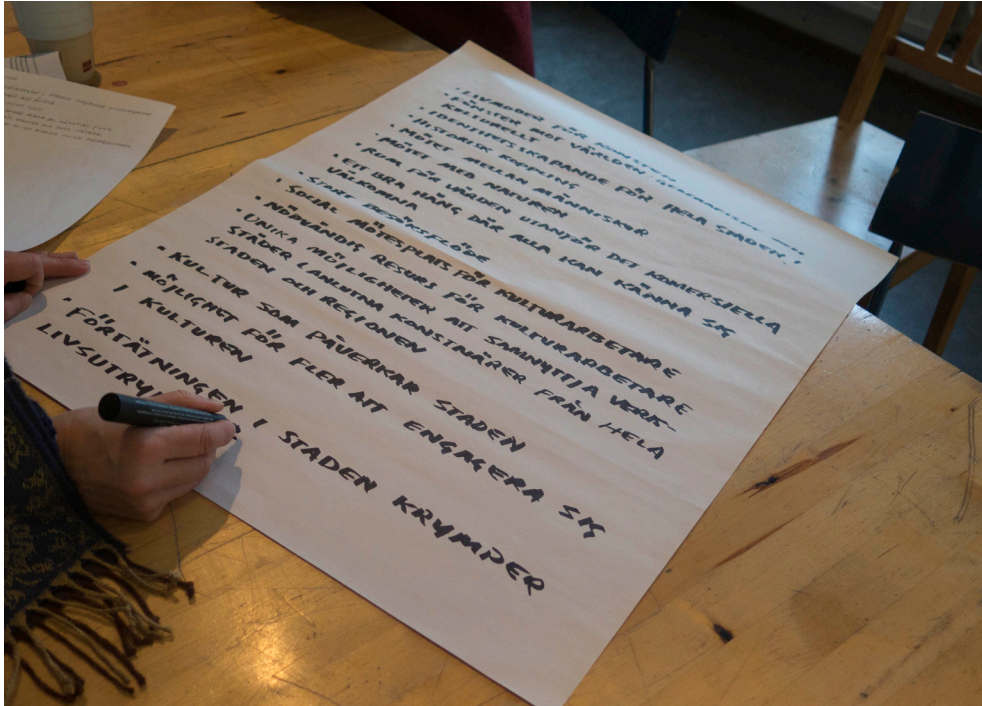 · LIVMODER FÖR KONSTEN
FÖNSTER MOT VÄRLDEN
KULTURELLT
· IDENTITETSSKAPANDE FÖR HELA STADEN!
· HISTORISK KOPPLING
· MÖTET MELLAN MÄNNISKOR
· MÖTET MED NATUREN
· RUM FÖR VÄRDEN UTANFÖR DET KOMERSIELLA
· ETT BRA HÄNG DÄR ALLA KAN KÄNNA SIG
VÄLKOMNA
· STORT BESÖKSFLÖDE
· SOCIAL MÖTESPLATS FÖR KULTURARBETARE
· NÖDVÄNDIG RESURS FÖR KULTURARBETARE
· UNIKA MÖJLIGHETER ATT SAMNYTTJA VERK-
STÄDER (ANLUTNA KONSTNÄRER FRÅN HELA
STADEN OCH REGIONEN
· KULTUR SOM PÅVERKAR STADEN
· MÖJLIGHET FÖR FLER ATT ENGAGERA SIG
I KULTUREN
· FÖRTÄTNINGEN I STADEN KRYMPER
LIVSUTRY